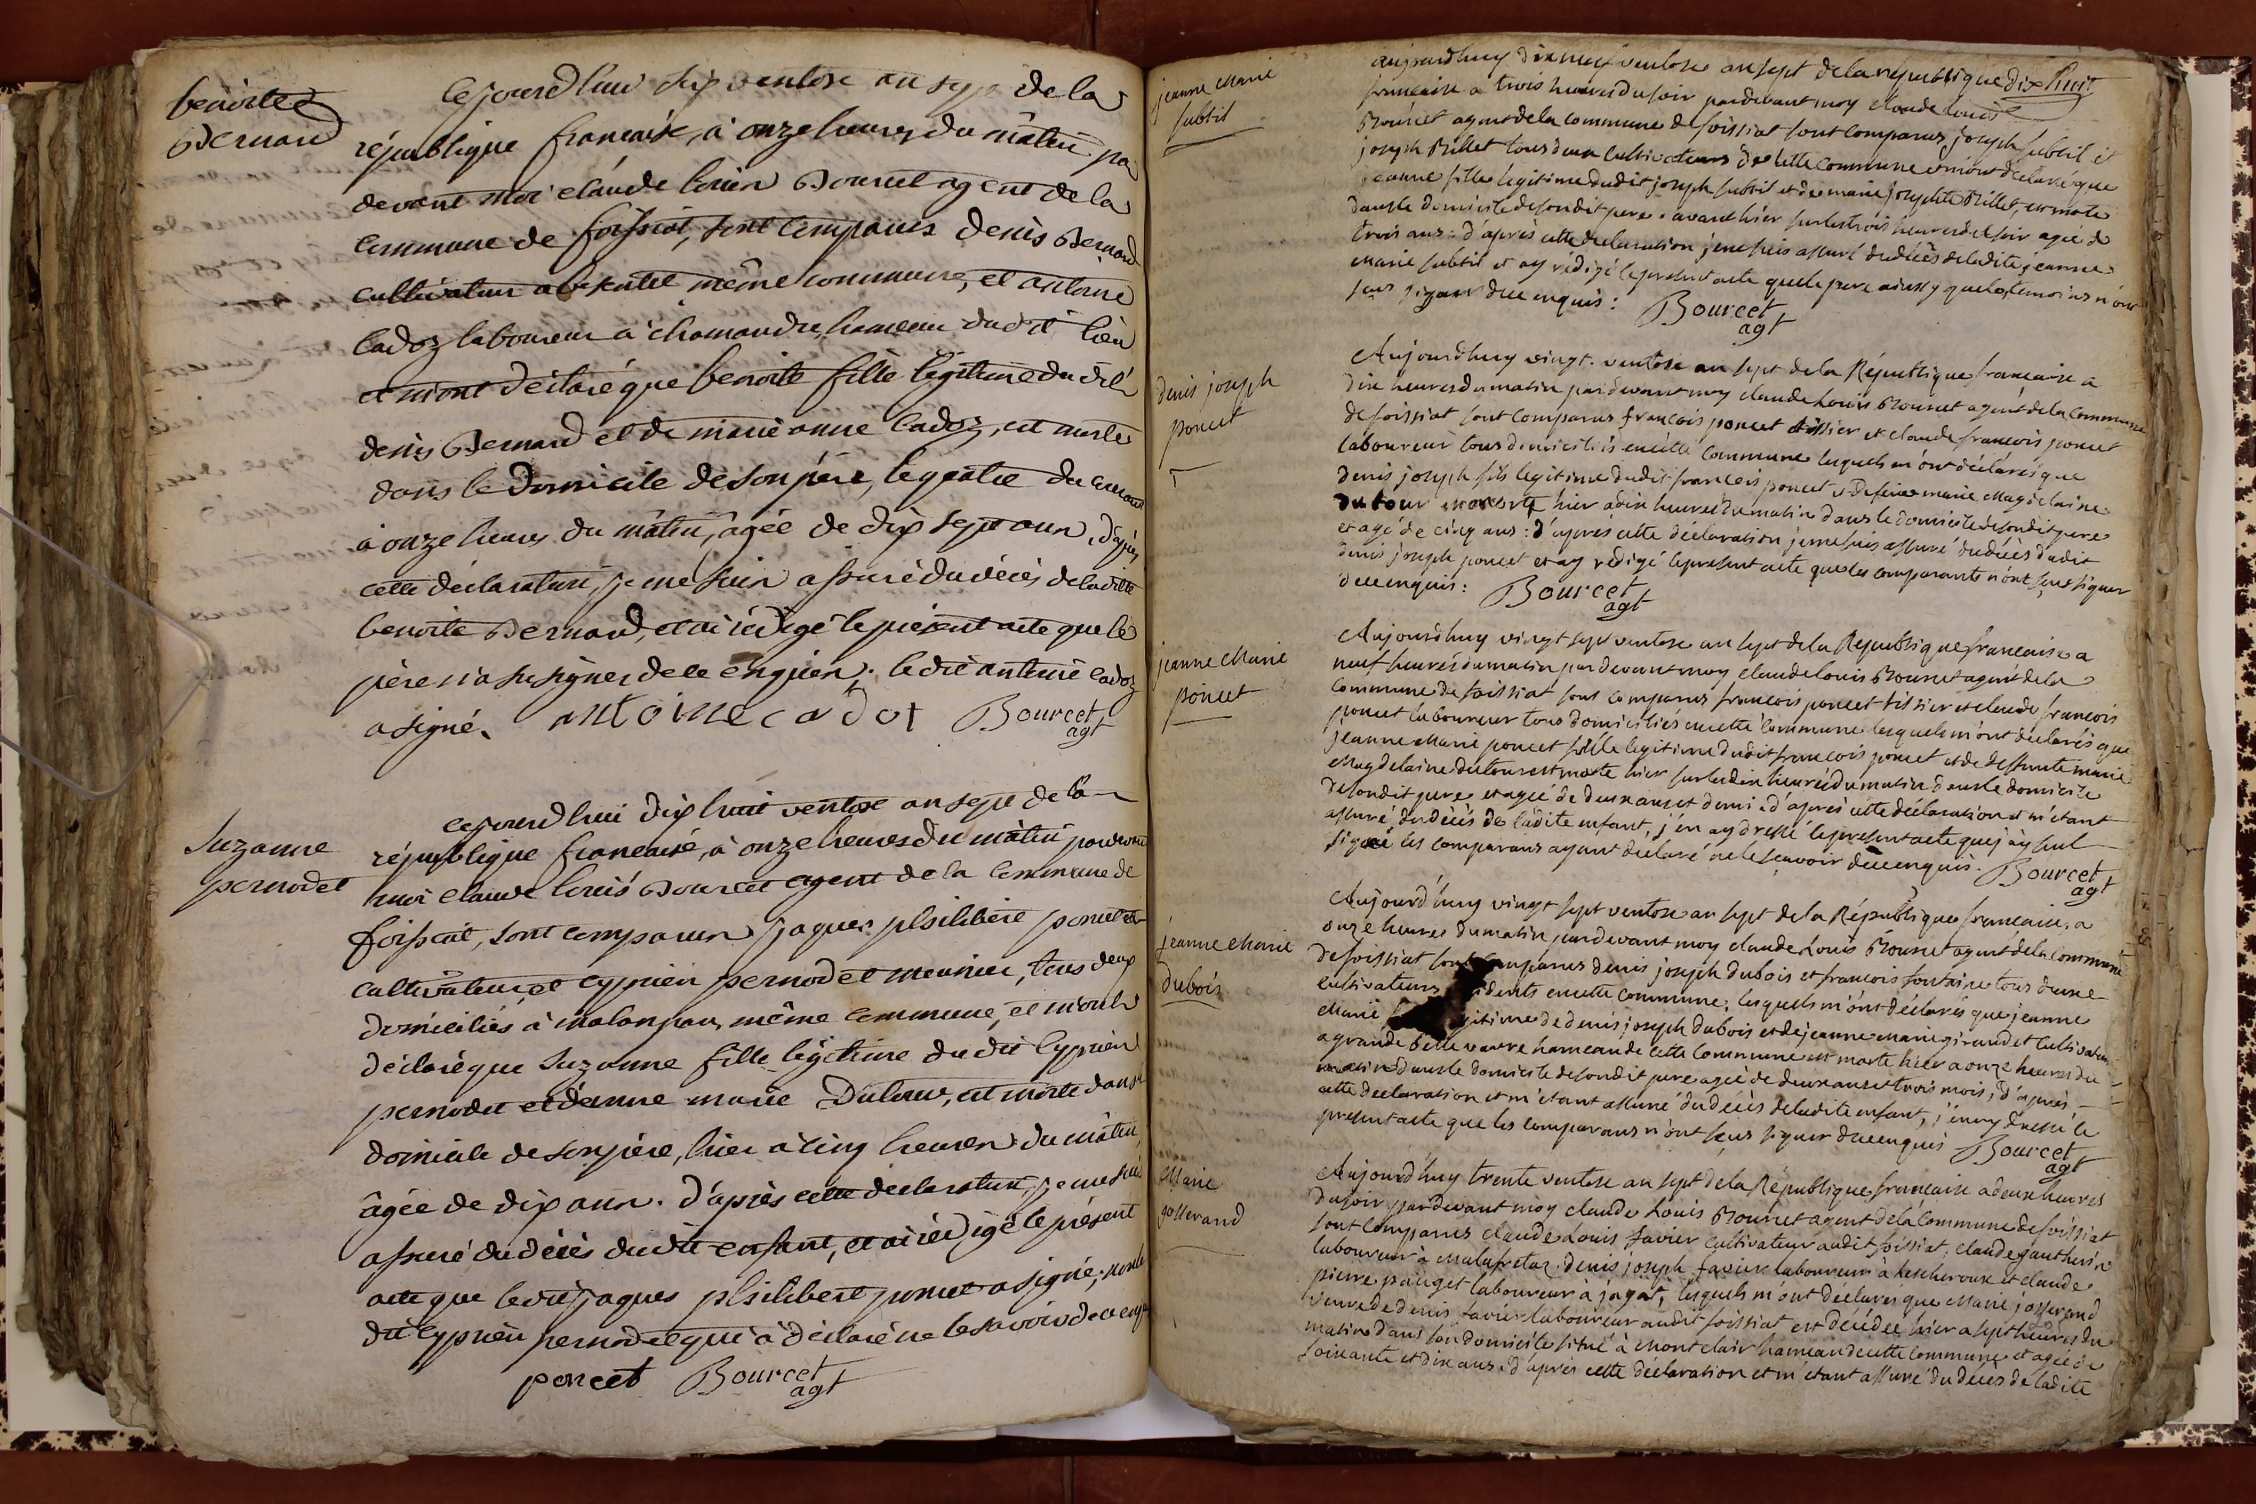 benoite
Bernard
Cejourdhui six ventose an sept de la
république française, à onze heures du mâtin par
devant moi claude louis Bourcet agent de la
commune de foissiat, sont comparus denis Bernard
cultivateur même commune, et antoine
cadoz laboureur à chamandre hameau dudit lieu
et m'ont déclaré que benoite fille légitime du dit
denis Bernard et de marie anne cadoz, est morte
dans le domicile de son père, le quatre du courant
à onze heures du mâtin, âgée de dix sept ans, d'après
cette déclaration, je me suis assuré du décès de la dite
benoite Bernard, et ai rédigé le présent acte que le
père n'a su signer de ce enquien; le dit antoine cadoz
a signé. antoine cadot Bourcet
agt
Suzanne
pernodet
Cejourdhui dix huit ventose an sept de la
république française, à onze heures du mâtin pardevant
moi claude louis Bourcet agent de la commune de
foissiat, sont comparus jaques philibert poncet
cultivateur, et cyprien pernodet meunier, tous deux
domiciliés à malanpan, même commune, et m'ont
déclaré que Suzanne fille légitime du dit Cyprien
pernodet et d'anne marie Dutour, est morte dans le
domicile de son père, hier à cinq heures du mâtin,
âgée de dix ans. d'après cette déclaration, je me suis
assuré du décès dudit enfant, et ai rédigé le présent
acte que le dit jaques philibert poncet a signé, non le
dit Cyprien pernodet qui a déclaré ne le savoir de ce enq
poncet Bourcet
agt
jeanne Marie
subtil
aujourdhuy dixneuf ventose an sept de la république dix huit
francaise a trois heures du soir pardevant moy claude louis
Bourcet agent de la commune de foissiat sont comparus joseph subtil et
joseph Billet tous deux cultivateurs de cette commune et m'ont déclaré que
jeanne fille legitime dudit joseph subtil et de marie josephte Billet, est morte
dans le domicile de son dit pere. avant hier sur les trois heures du soir agée de
trois ans: d'apres cette declaration je me suis assuré du décès de ladite jeanne
Marie subtil et ay rédigé le present acte que le pere ainsy que les temoins n'ont
sçus signer de ce enquis: Bourcet
agt
denis joseph
poncet
Aujourdhuy vingt ventose an sept de la République francaise a
dix heures du matin pardevant moy claude Louis Bourcet agent de la Commune
de foissiat sont comparus francois poncet tissier et claude francois poncet
laboureur tous domiciliés en cette commune lesquels m'ont déclarés que
denis joseph fils legitime dudit francois poncet et de feue marie Magdelaine
dutour mort hier a dix heures du matin dans le domicile de son dit pere
et agé de cinq ans: d'apres cette déclaration je me suis assuré du décès dudit
denis joseph poncet et ay rédigé le present acte que les comparants n'ont sçus signer
de ce enquis: Bourcet
agt
jeanne Marie
poncet
Aujourdhuy vingt sept ventose an sept de la République francaise a
neuf heures du matin pardevant moy claude louis Bourcet agent de la
commune de foissiat sont comparus francois poncet tissier et claude francois
poncet laboureur tous domiciliés en cette commune lesquels m'ont déclarés que
jeanne Marie poncet fille legitime dudit francois poncet et de deffunte marie
Magdelaine dutour est morte hier sur les dix heures du matin dans le domicile
de son dit pere et agée de deux ans et demi: d'après cette déclaration et m'étant
assuré du décès de ladite enfant, j'en ay dressé le present acte que j'ay seul
signé les comparans ayant declaré ne le sçavoir de ce enquis. Bourcet
agt
jeanne Marie
dubois
Aujourd'huy vingt sept ventose an sept de la République francaise, a
onze heures du matin pardevant moy claude Louis Bourcet agent de la commune
de foissiat sont comparus denis joseph dubois et francois fontaine tous deux
cultivateurs résidents en cette commune; lesquels m'ont déclarés que jeanne
Marie legitime de denis joseph dubois et de jeanne marie giraudet cultivateurs
a grande belle vavre hameau de cette commune est morte hier a onze heures du
matin dans le domicile de son dit pere agée de deux ans et trois mois; d'après
cette declaration et m'étant assuré du décès de ladite enfant, j'en ay dressé le
present acte que les comparans n'ont sçus signer de ce enquis Bourcet
agt
Marie
josserand
Aujourd'huy trente ventose an sept de la République francaise a deux heures
du soir pardevant moy claude Louis Bourcet agent de la Commune de foissiat
sont comparus claude Louis favier cultivateur audit foissiat, claude gautherin
laboureur à Malafretaz, denis joseph favier laboureur à lescheroux et claude
pierre pauget laboureur à jayat, lesquels m'ont declarés que Marie josserand
veuve de denis favier laboureur audit foissiat est décédée hier a sept heures du
matin dans son domicile situé à Montclair hameau de cette commune et agée de
soixante et dix ans. d'après cette déclaration et m'étant assuré du décès de ladite